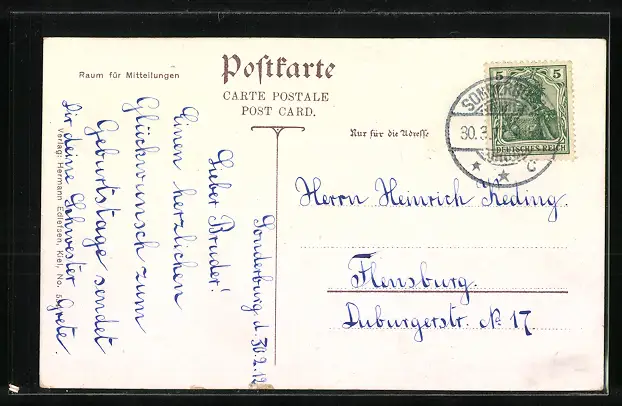 Raum für Mitteilungen
Postkarte
CARTE POSTALE
POST CARD.
Nur für die Adresse
5 5
DEUTSCHES REICH
30.3.
Sonderburg d. 30.2.12
Lieber Bruder!
Einen herzlichen
Glückwunsch zum
Geburtstage sendet
Dir deine Schwester Grete.
Verlag: Hermann Edlefsen, Kiel, No.
Herrn Heinrich Reding.
Flensburg.
Duburgerstr. No 17